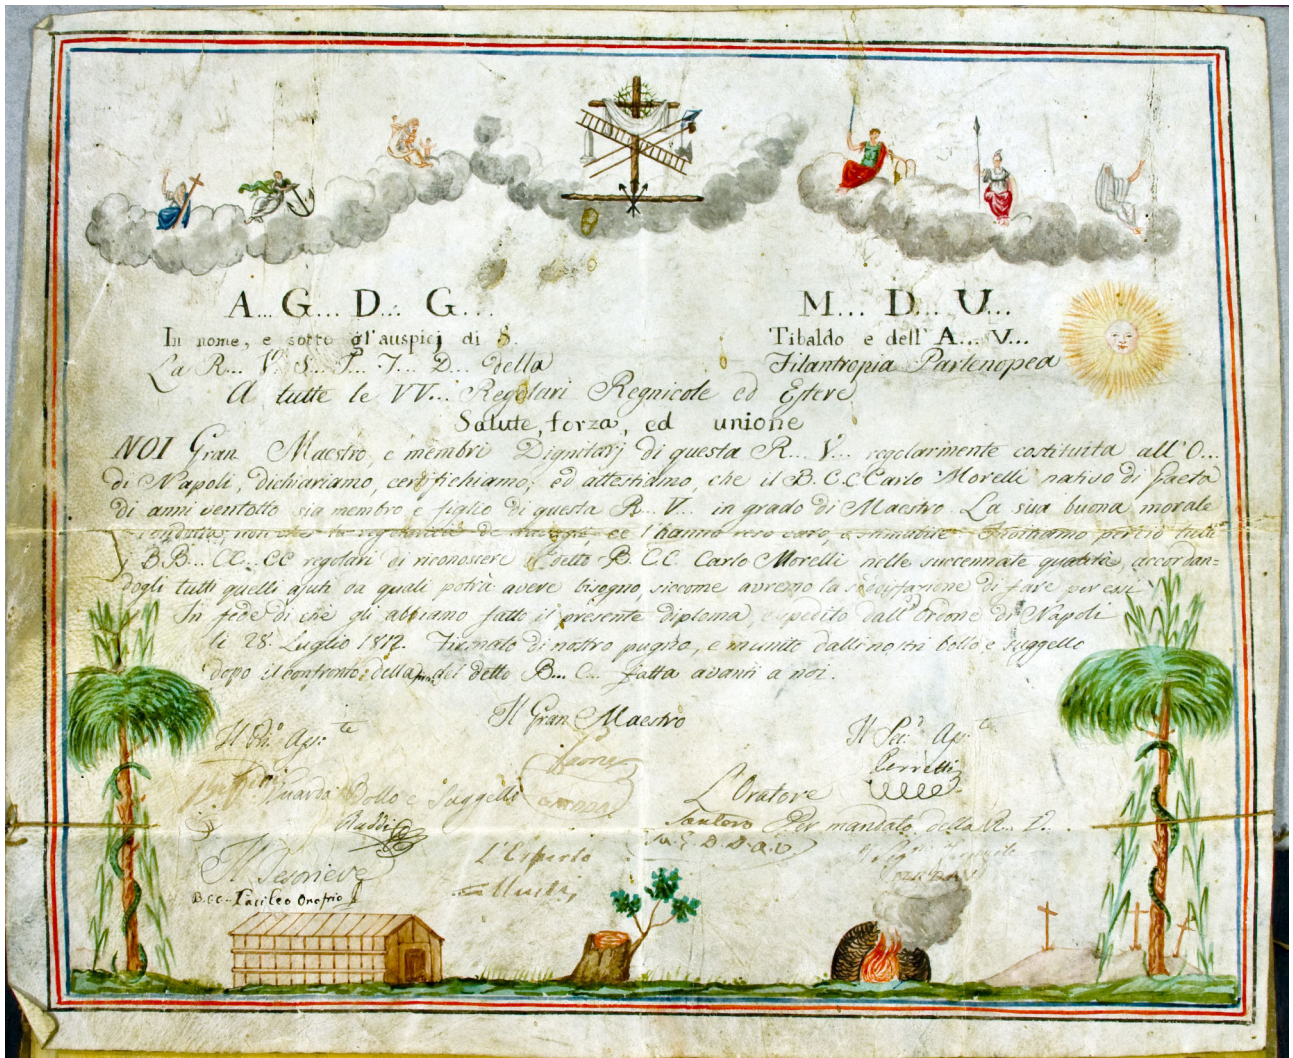 A... G... D... G... M... D... U...
In nome, e sotto gl'auspicj di S. Tibaldo e dell' A... V...
La R... V... S... P... J... D... della Filantropia Partenopea
A tutte le VV... Regolari Regnicole ed Estere
Salute, forza, ed unione
NOI Gran Maestro, e membri Dignitarj di questa R... V... regolarmente costituita all' O...
di Napoli, dichiariamo, certifichiamo, ed attestiamo, che il B. C. C. Carlo Morelli nativo di Gaeta
di anni ventotto sia membro e figlio di questa R... V... in grado di Maestro. La sua buona morale
condotta, non che la ce l'hanno reso caro, Preghiamo perciò tutti
i BB... CC... CC regolari di riconoscere il detto B. C. C. Carlo Morelli nelle succennate qualità, accordan-
dogli tutti quelli ajuti da quali potrà avere bisogno, siccome avremo la soddisfazione di fare per essi
In fede di che gli abbiamo fatto il presente diploma expedito dall' Ordone di Napoli
li 28 Luglio 1812. Firmato di nostro pugno, e munito dalli nostri bollo e suggello
dopo il confronto della del detto B... C... fatta avanti a noi.
Il Gran Maestro
Il Pri.º Ass.te Il Sec.º Ass.te
Perretti
Guarda Bollo e Suggello L'Oratore
Santoro Per mandato della R... V...
L'Esperto
Il Tesoriere
B.CC. Pacileo Onofrio